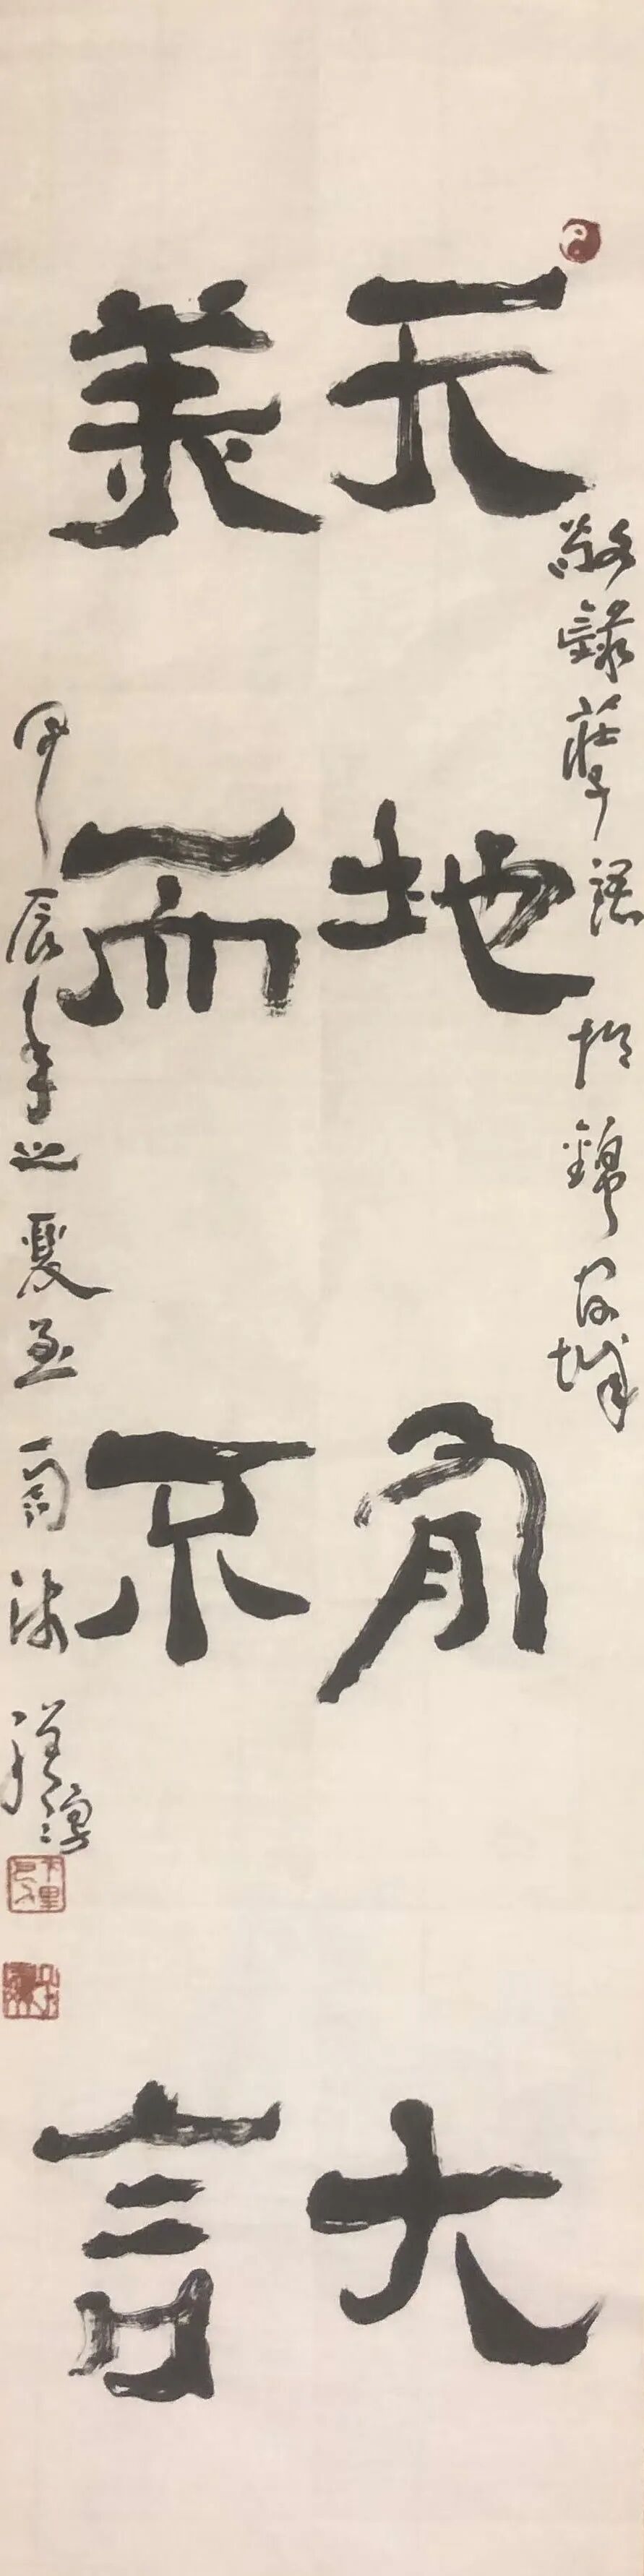 天地有大
美而不言
敬录莊子語于錦官城
甲辰年之夏至